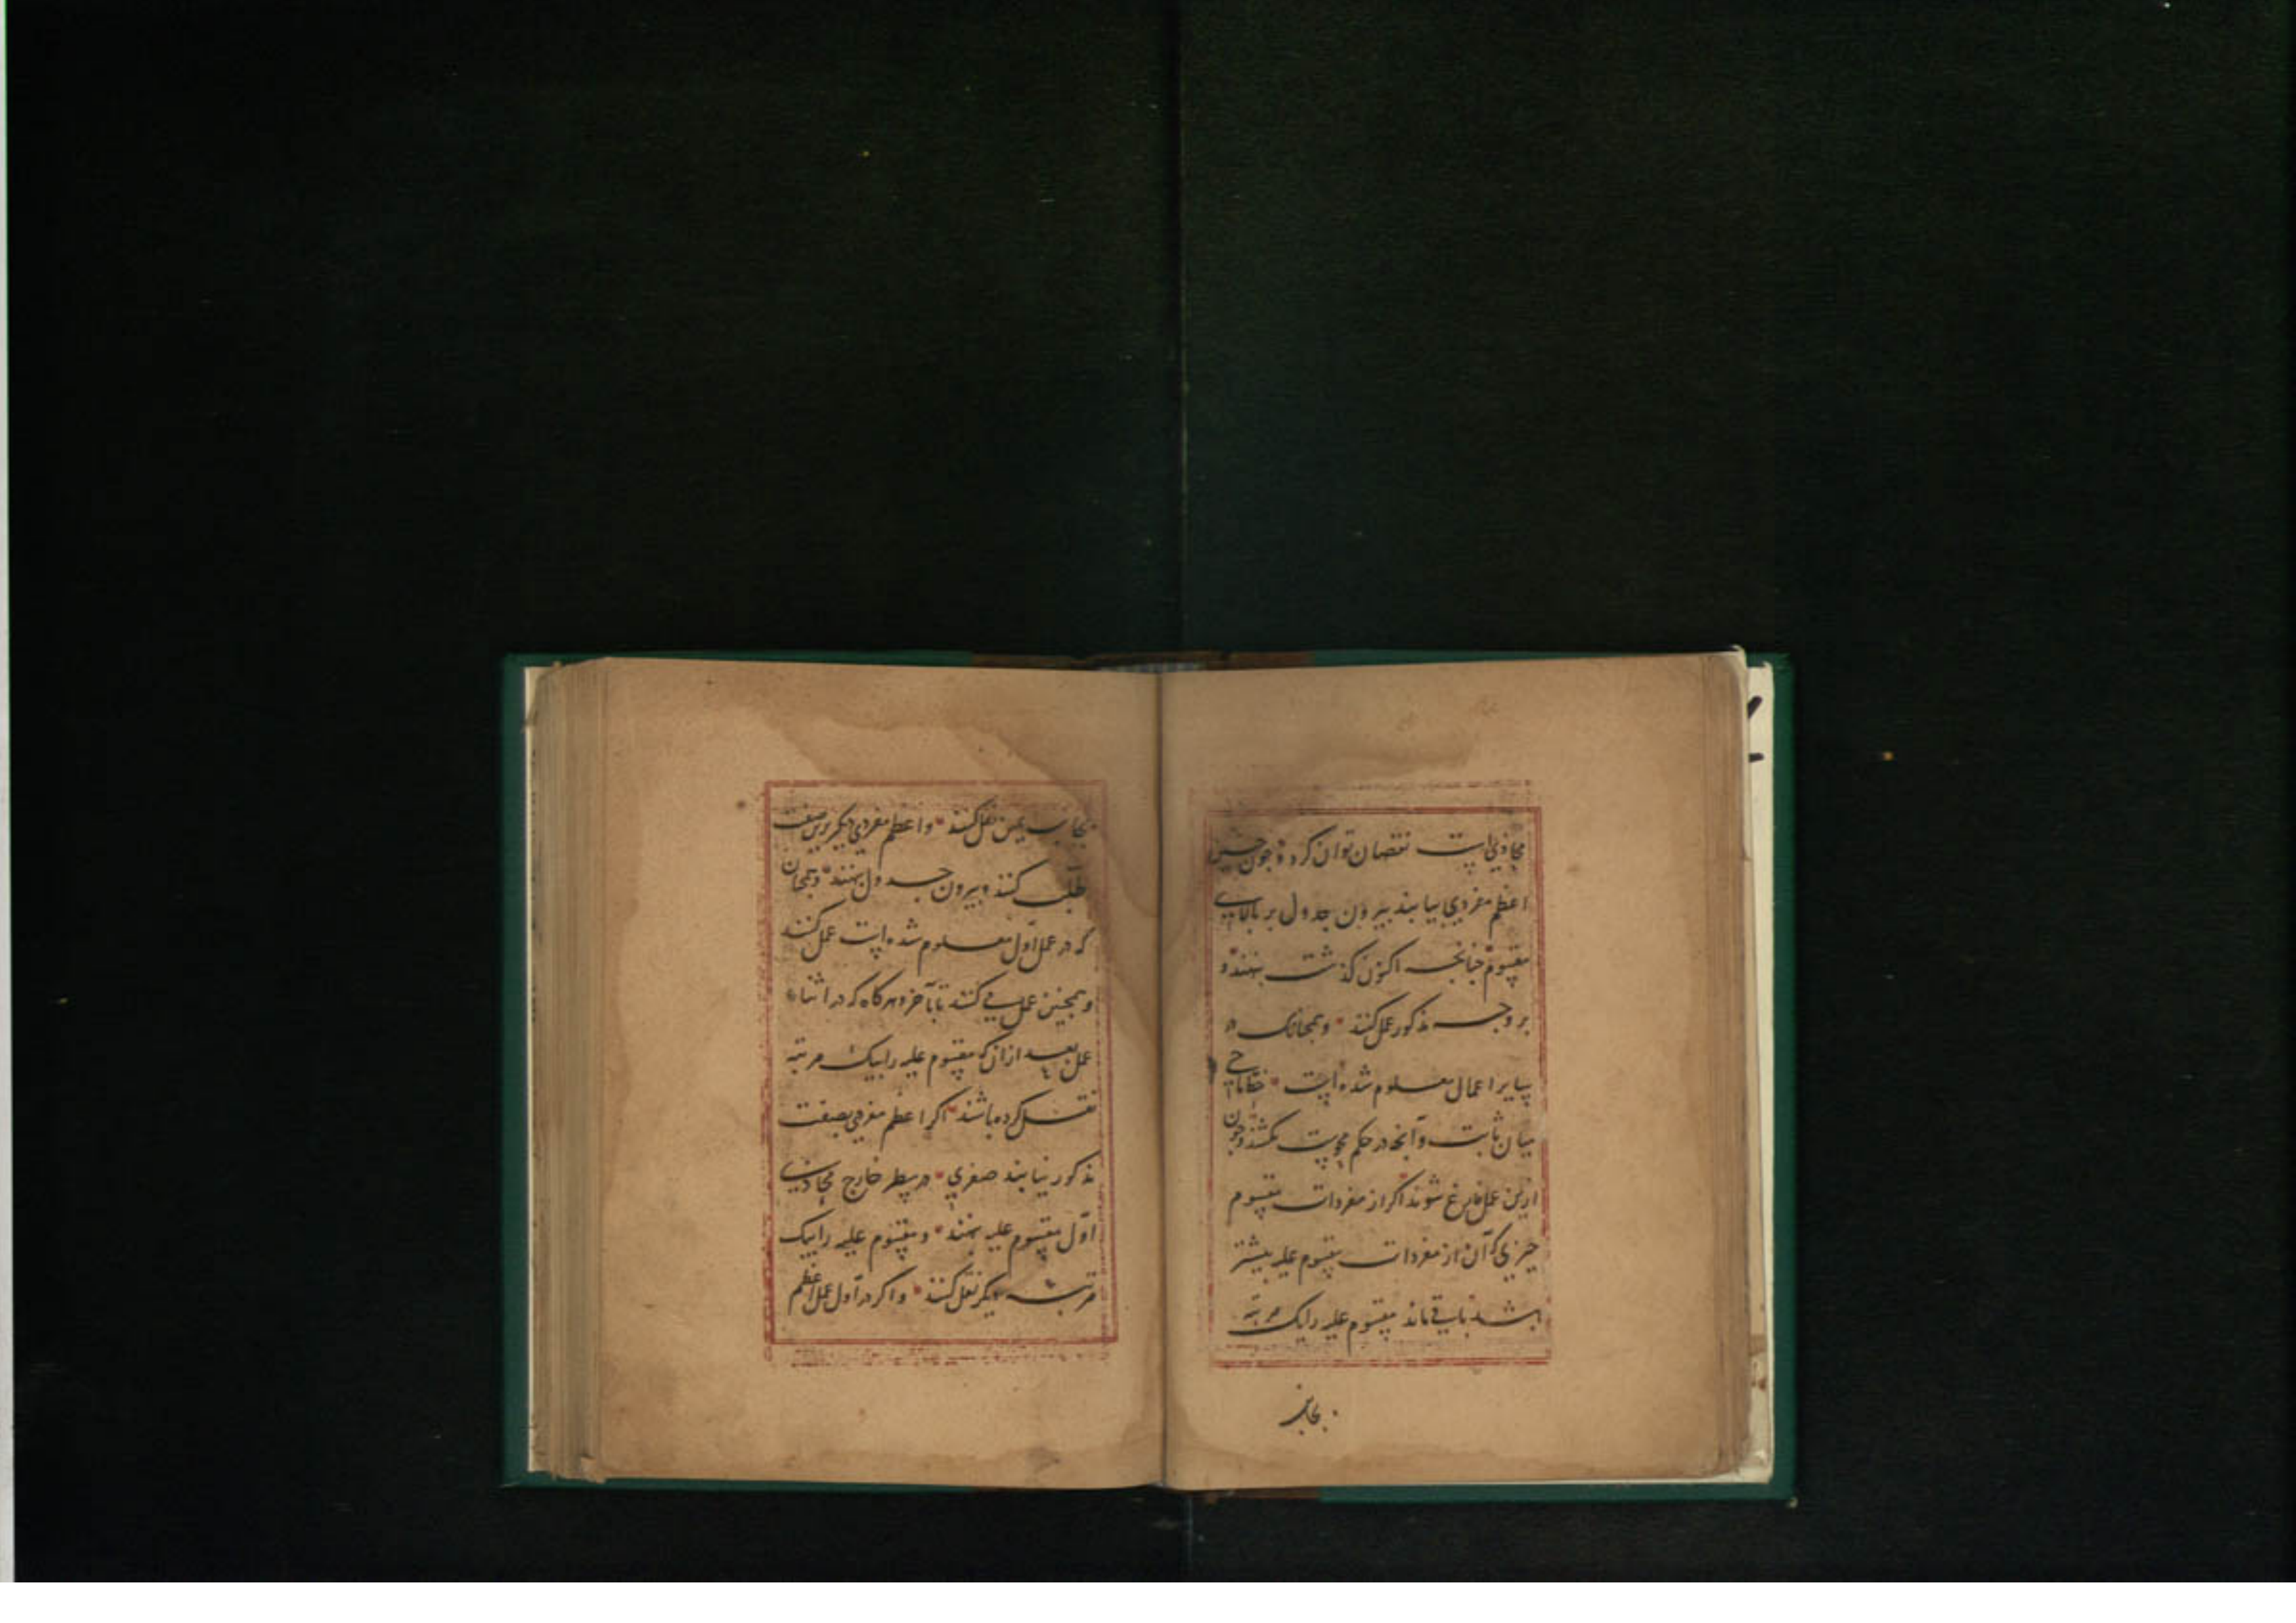 محاذی است نقصان توان کرد و چون چنین
اعظم مفردی بیابند بیرون جدول بر بالای
مقسوم چنانچه اکنون گذشت بنهند و
بر وجه مذکور عمل کنند و همچنانک در
سایر اعمال معلوم شده است خطی
میان ثابت و آنچه در حکم محوست بکشند و چون
ازین عمل فارغ شوند اگر از مفردات مقسوم
چیزی که آن از مفردات مقسوم علیه بیشتر
باشد باقی ماند مقسوم علیه را یک مرتبه
بجانب
بجانب یمین نقل کنند و اعظم مفردی دیگر برین صفت
طلب کنند و بیرون جدول بنهند و همچنان
که در عمل اول معلوم شده است عمل کنند
و همچنین عمل می کنند تا بآخر و هر گاه که در اثناء
عمل بعد از آن که مقسوم علیه را بیک مرتبه
نقل کرده باشند اگر اعظم مفردی بصفت
مذکور نیابند صفری در سطر خارج محاذی
اول مقسوم علیه بنهند و مقسوم علیه را بیک
مرتبه دیگر نقل کنند و اگر در اول عمل اعظم